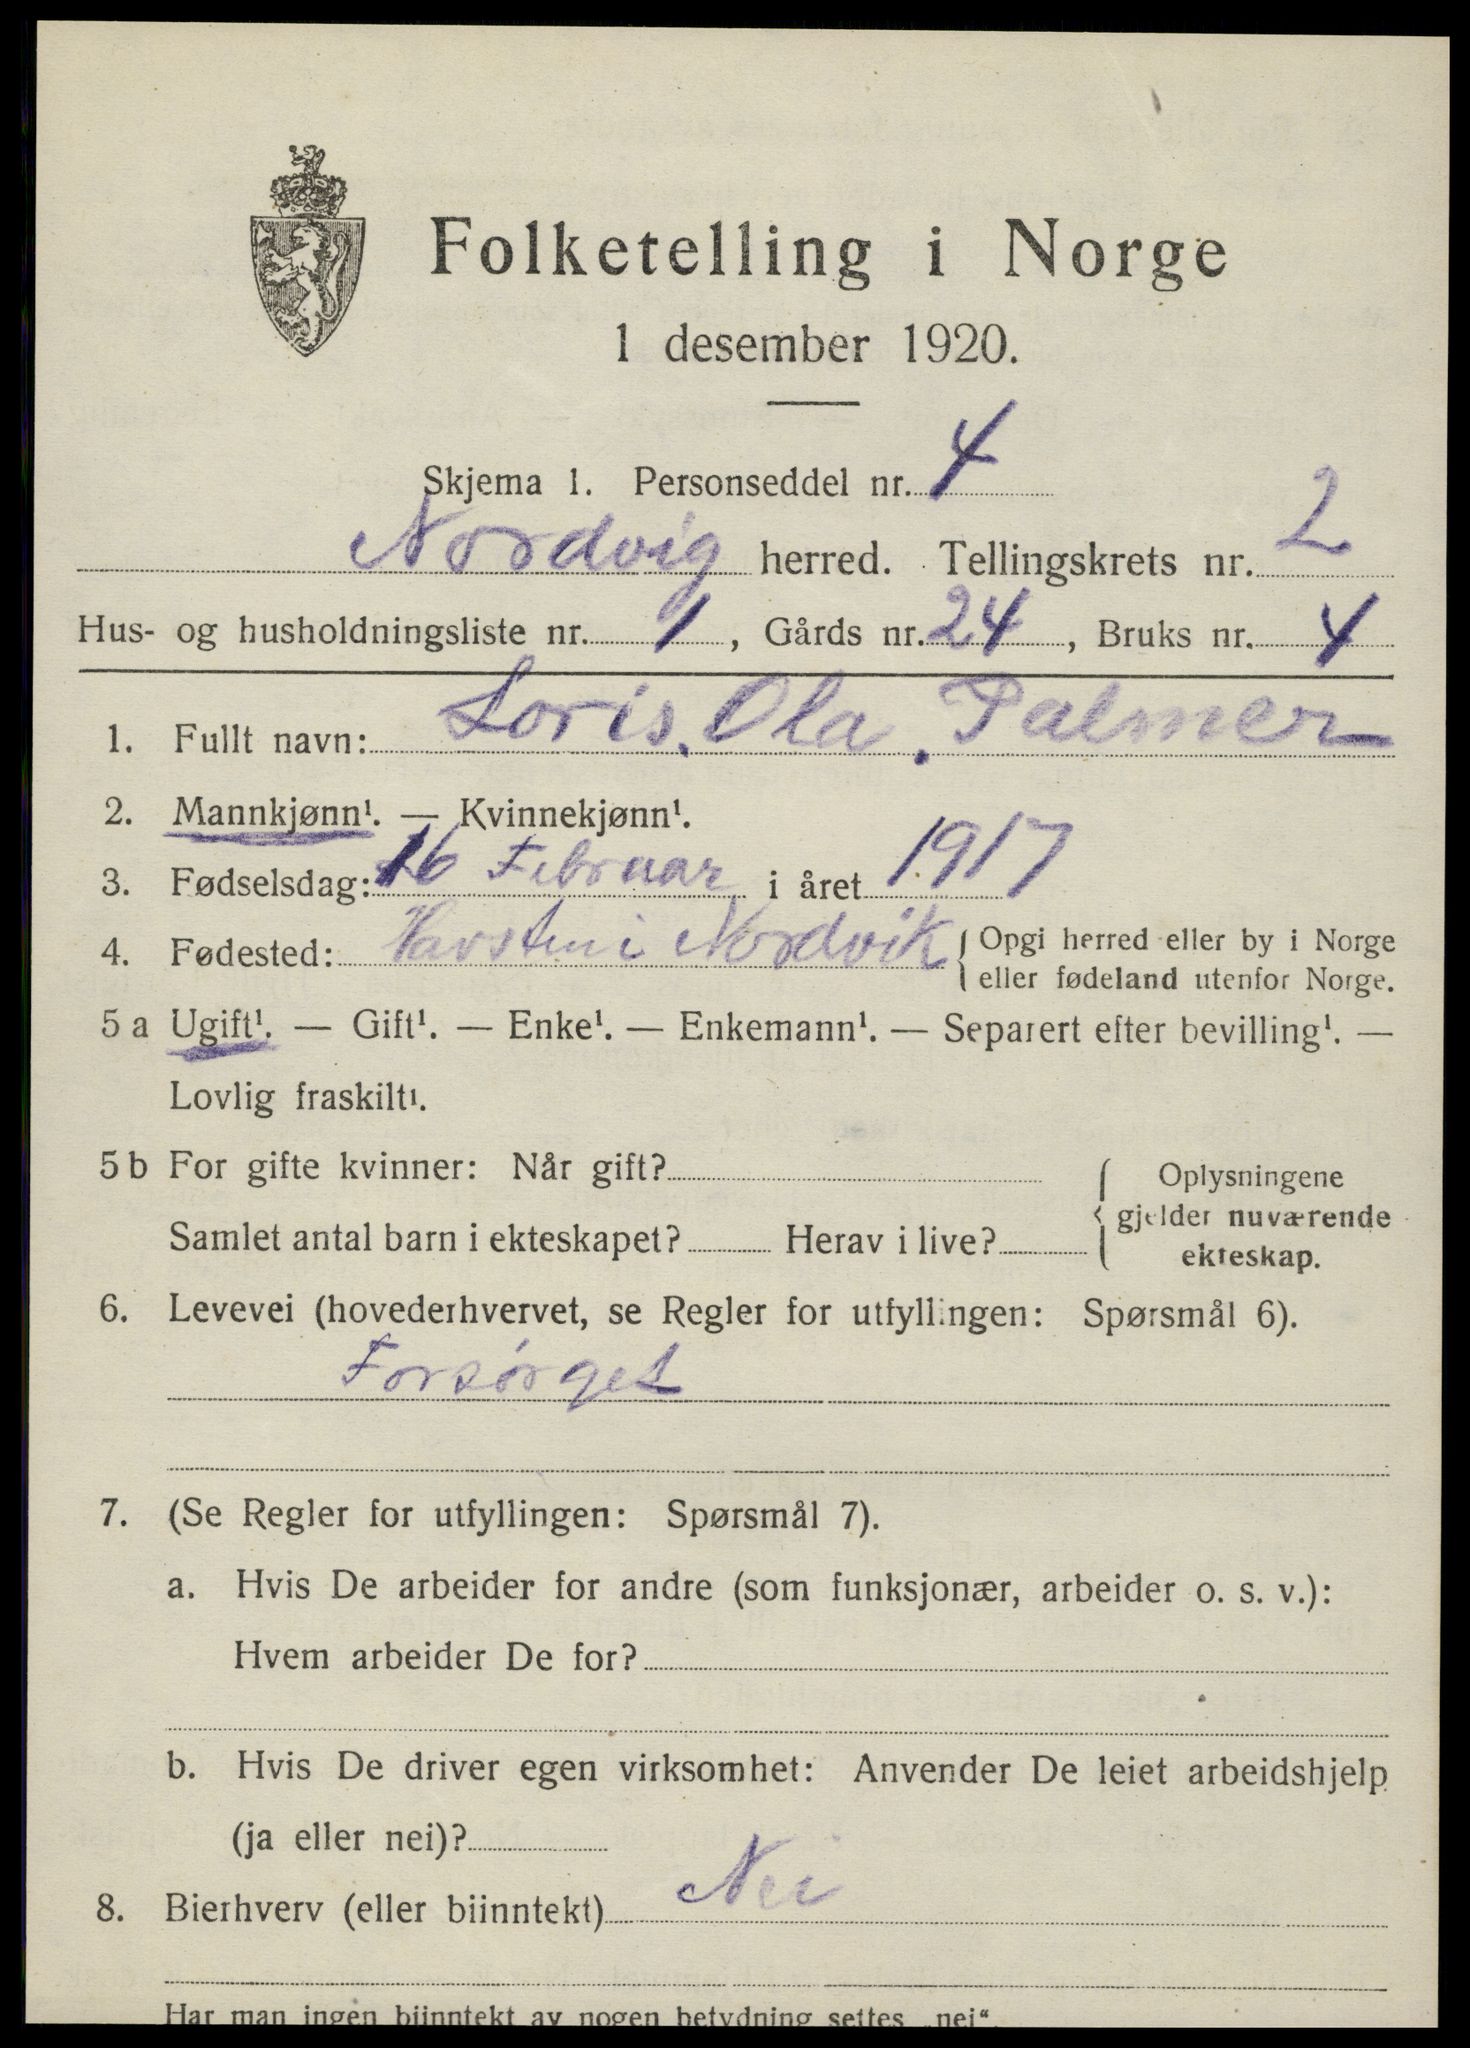 Folketelling i Norge
1 desember 1920.
Skjema 1. Personseddel nr. 4
Nordvig herred. Tellingskrets nr. 2
Hus- og husholdningsliste nr. 1, Gårds nr. 24, Bruks nr. 4
1. Fullt navn: Loris. Ola. Palmer
2. Mannkjønn¹. — Kvinnekjønn¹.
3. Fødselsdag: 16 Februar i året 1917
4. Fødested: i Nordvik { Opgi herred eller by i Norge
eller fødeland utenfor Norge.
5 a Ugift¹. — Gift¹. — Enke¹. — Enkemann¹. — Separert efter bevilling¹. —
Lovlig fraskilt¹.
5 b For gifte kvinner: Når gift? { Oplysningene
gjelder nuværende
Samlet antal barn i ekteskapet? Herav i live?
ekteskap.
6. Levevei (hovederhvervet, se Regler for utfyllingen: Spørsmål 6).
Forsörget
7. (Se Regler for utfyllingen: Spørsmål 7).
a. Hvis De arbeider for andre (som funksjonær, arbeider o. s. v.):
Hvem arbeider De for?
b. Hvis De driver egen virksomhet: Anvender De leiet arbeidshjelp
(ja eller nei)?
8. Bierhverv (eller biinntekt) Nei
Har man ingen biinntekt av nogen betydning settes „nei“.